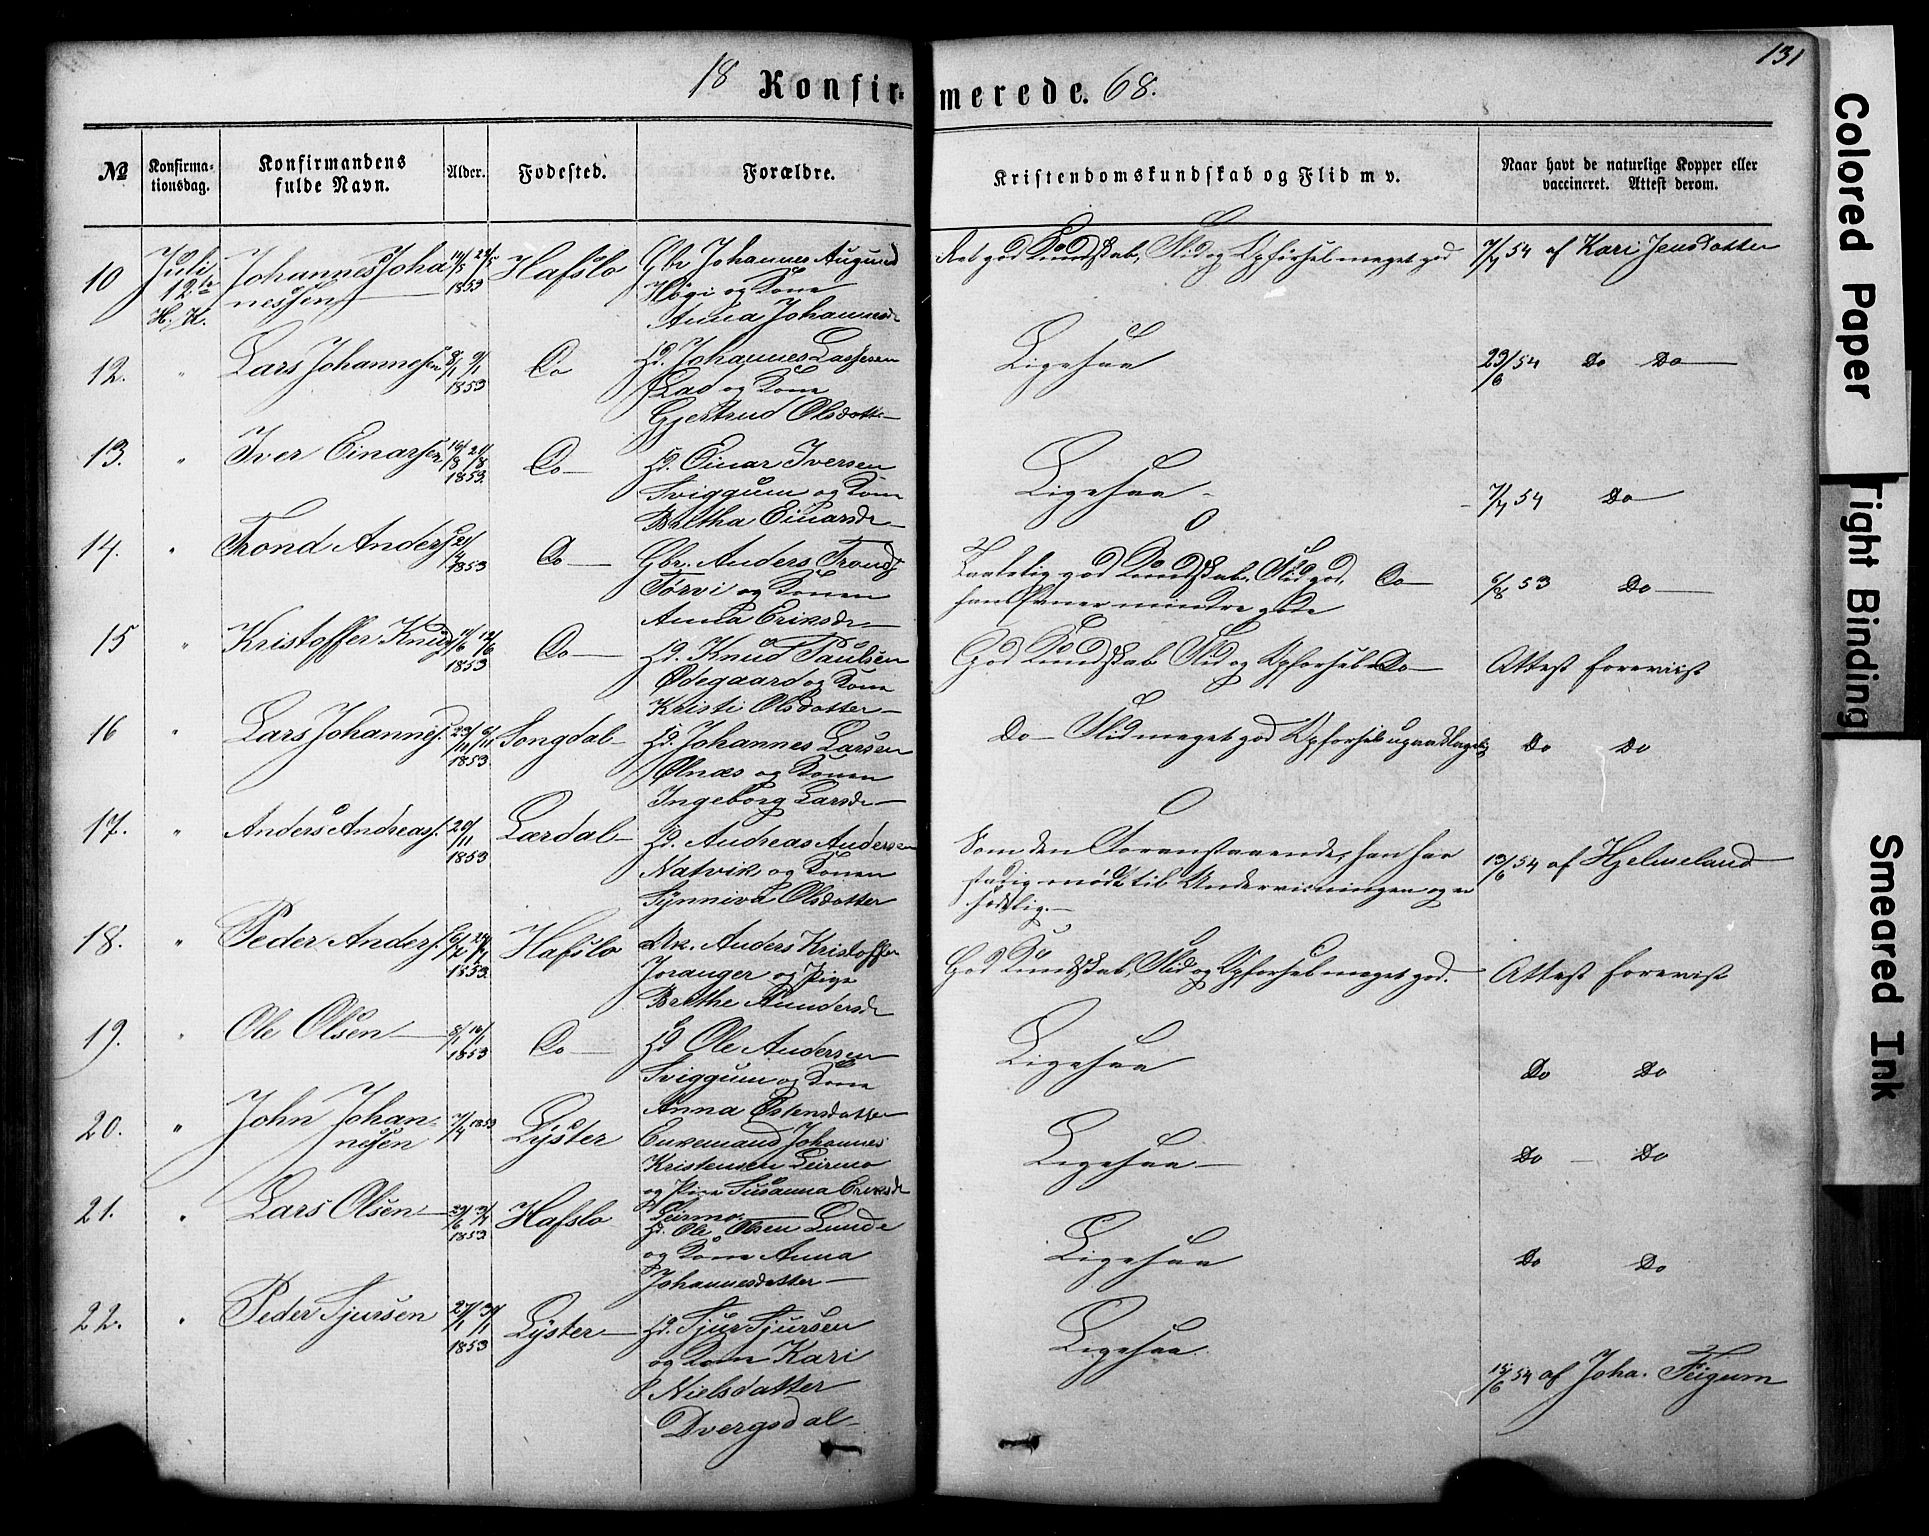 18 Konfirmerede. 68.
131
No Konfirmationsdag. Konfirmandens fulde Navn. Alder. Fodested. Forældre. Kristendomskundskab og Flid m v. Naar havt de naturlige Kopper eller vaccineret. Attest derom.
10 Juli 12te H. K. Johannes Johannessen 1853 Hafslo Gbr Johannes
og Kone
Anna Johannesd
god Kundskab, Flid og Opførsel meget god 7/7 54 af Kari Jensdatter
12. " Lars Johannesen 8/1 9/1 1853 Do Hd. Johannes Lassesen
Lad og Kone
Gjertrud Olsdatter
Ligesaa 23/6 54 Do Do
13. " Iver Einarsen 1853 Do Hd. Einar Iversen
Sviggum og Kone
Brethe Einarsdr
Ligesaa 7/7 54 Do
14. " Trond Anders 1853 Do Gbr. Anders Tronds
Torvi og Konen
Anna Eriksdr
Temmelig god Kundskab, Flid god, Do
mindre gode
6/8 53 Do
15 " Kristoffer Knuds 1853 Do Hd. Knud Paulsen
Ødegaard og Kone
Kristi Olsdatter
God Kundskab Flid og Opførsel Do Attest forevist
16 " Lars Johannes. 1853 Songdal Hd. Johannes Larsen
Ølnæs og Konen
Ingeborg Larsdr
Do Flid meget god Opførsel upaaklagelig Do Do
17. " Anders Andreass. 20/11 1853 Lærdal Hd. Andreas Andersen
Natvik og Konen
Synniva Olsdatter
Som den Foranstaaende, han har
stadig mødt til Undervisningen og er
13/6 54 af Hjelmeland
18. " Peder Anders. 1853 Hafslo Uk. Anders Kristoffer
Joranger og Pige
Brethe Aundersdr
God Kundskab, Flid og Opførsel meget god. Attest forevist
19. " Ole Olsen 1853 Do Hd Ole Andersen
Sviggum og Kone
Anna Østensdatter
Ligesaa Do Do
20. " John Johannesen 7/4 1853 Lyster Enkemand Johannes
Kristensen Leirmo
og Pige Susanna Eriksdr
Leirmo
Ligesaa Do Do
21. " Lars Olsen 1853 Hafslo Hd. Ole Olsen Lunde
og Kone Anna
Johannesdatter
Ligesaa Do Do
22. " Peder Sjursen 27/1 1853 Lyster Hd. Sjur Sjursen
og Kone Kari
Nielsdatter
Dvergsdal
Ligesaa. 15/6 54 af Joha. Feigum
Colored Paper
Tight Binding
Smeared Ink